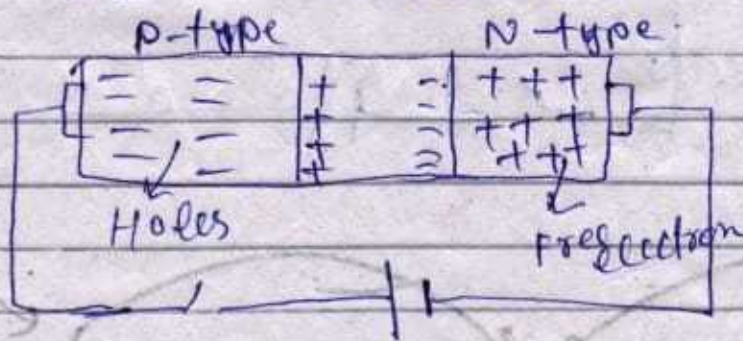 P-type N-type
= = + - + + +
+ - + + +
= = + = + + +
Holes Free electron